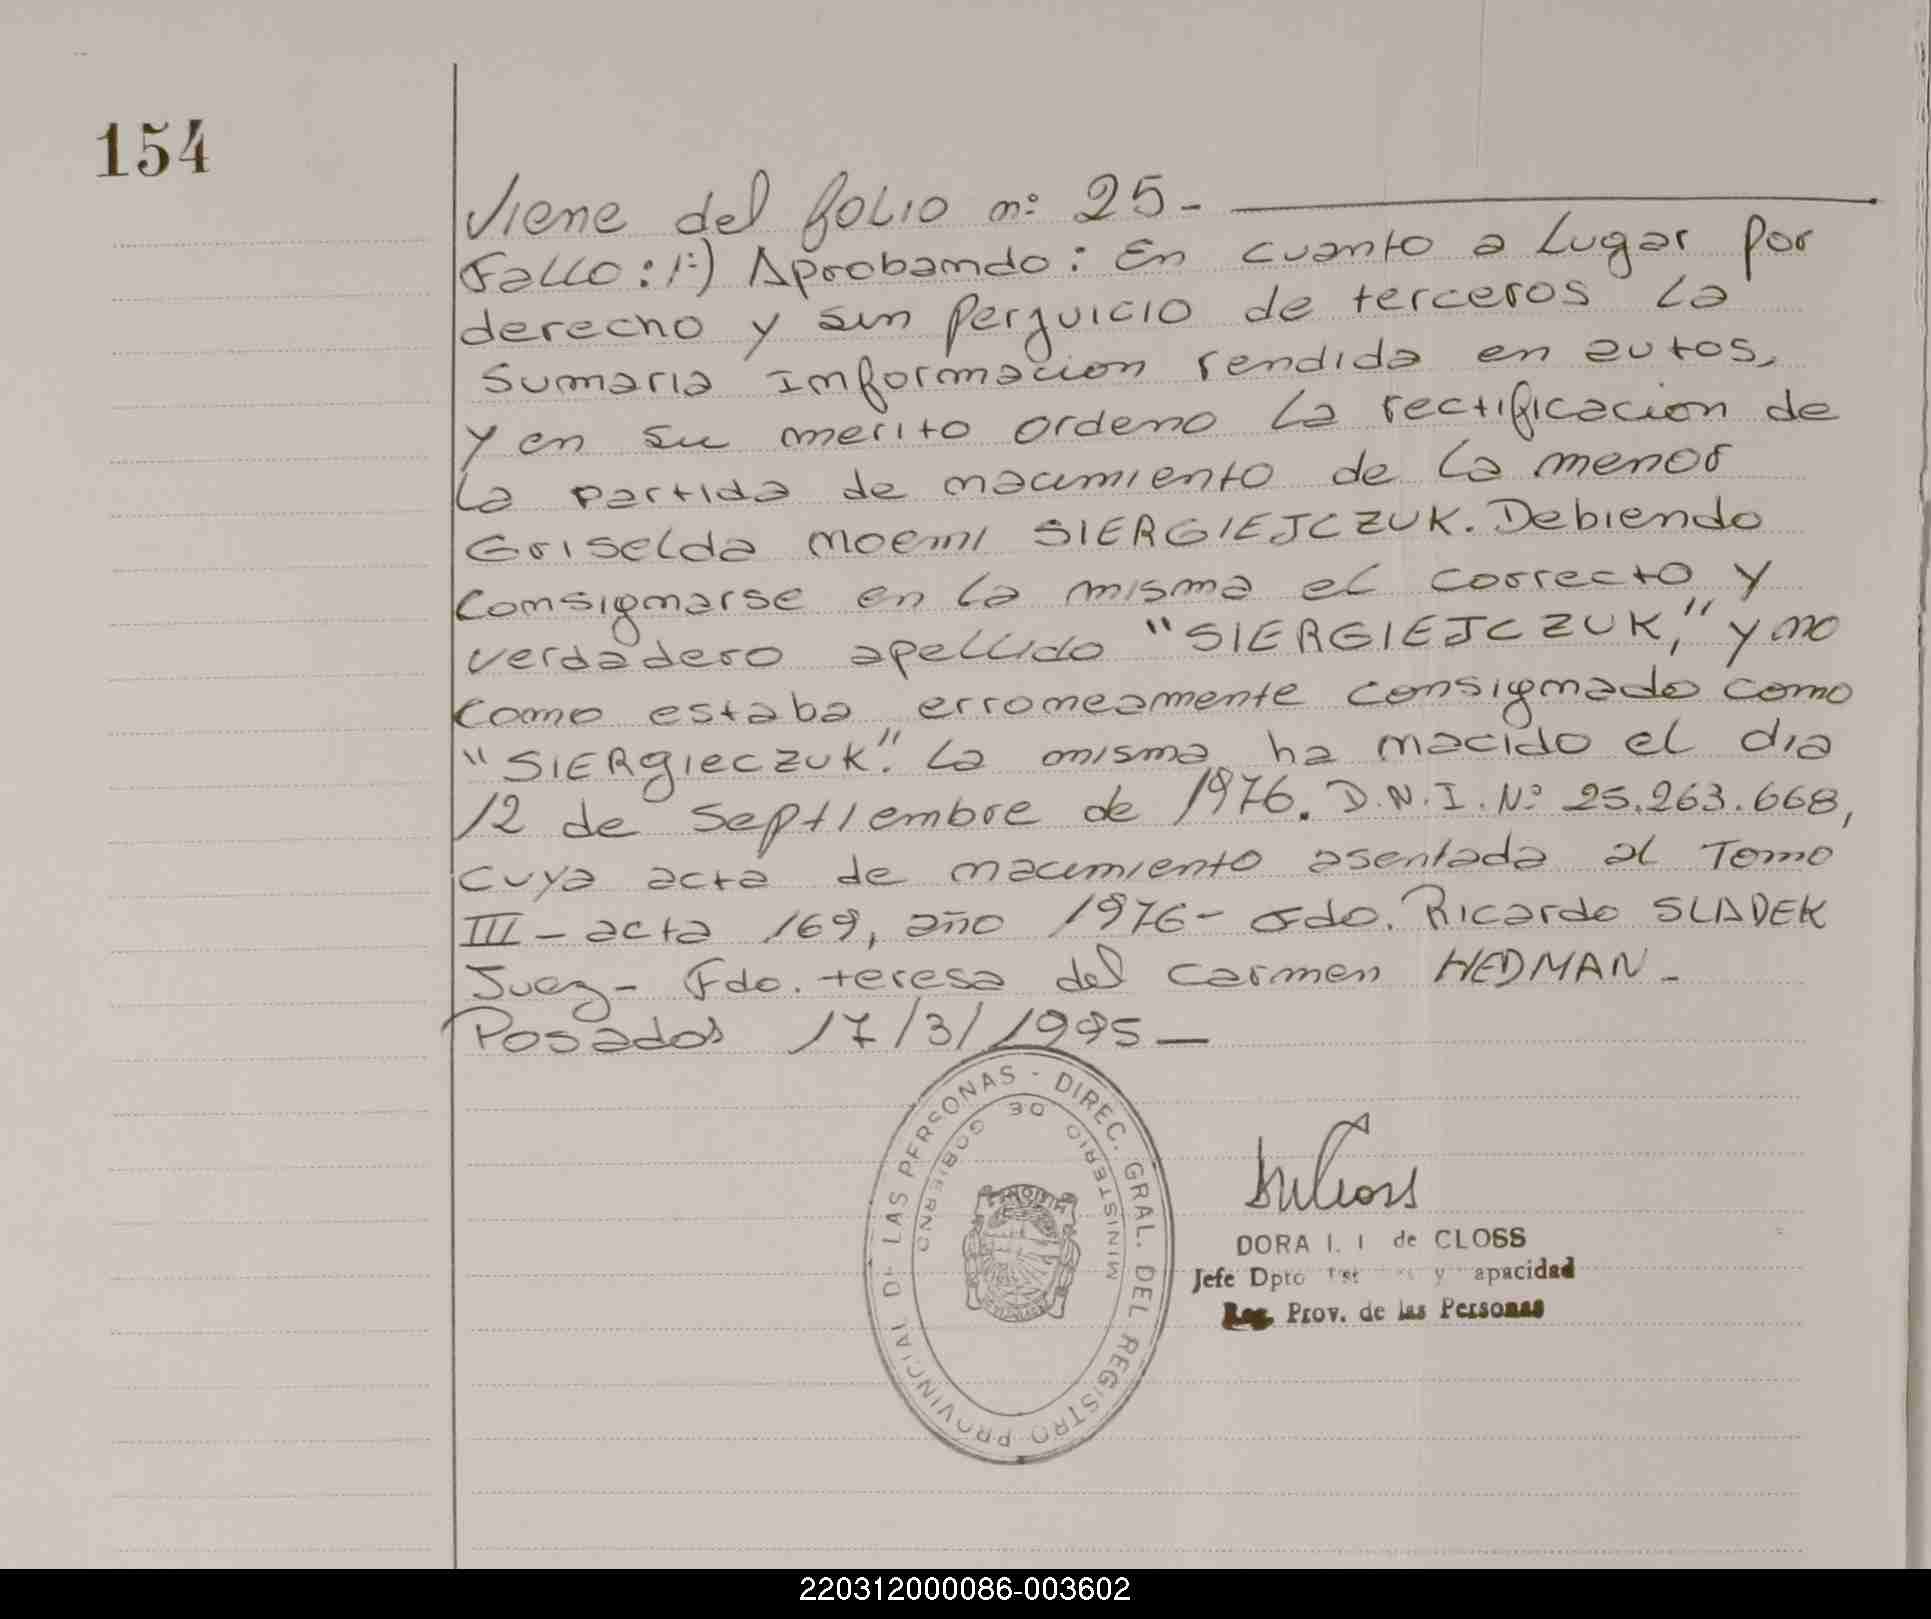 154
Viene del folio nº 25-
Fallo: 1º) Aprobando: En cuanto a Lugar por
derecho y sin perjuicio de terceros la
Sumaria Informacion rendida en autos,
y en su merito ordeno la rectificacion de
la partida de nacimiento de la menor
Griselda Noemi SIERGIEJCZUK. Debiendo
Consignarse en la misma el correcto y
verdadero apellido "SIERGIEJCZUK," y no
como estaba erroneamente consignado como
"SIERgieczuk". La misma ha nacido el dia
12 de Septiembre de 1976. D.N.I. Nº 25.263.668,
cuya acta de nacimiento asentada al Tomo
III - acta 169, año 1976- Fdo. Ricardo SLADEK
Juez- Fdo. teresa del Carmen HEDMAN-
Posadas 17/3/1995-
DIREC. GRAL. DEL REGISTRO PROVINCIAL DE LAS PERSONAS -
MINISTERIO DE GOBIERNO
DORA I. I de CLOSS
Jefe Dpto y apacidad
Reg. Prov. de las Personas
220312000086-003602